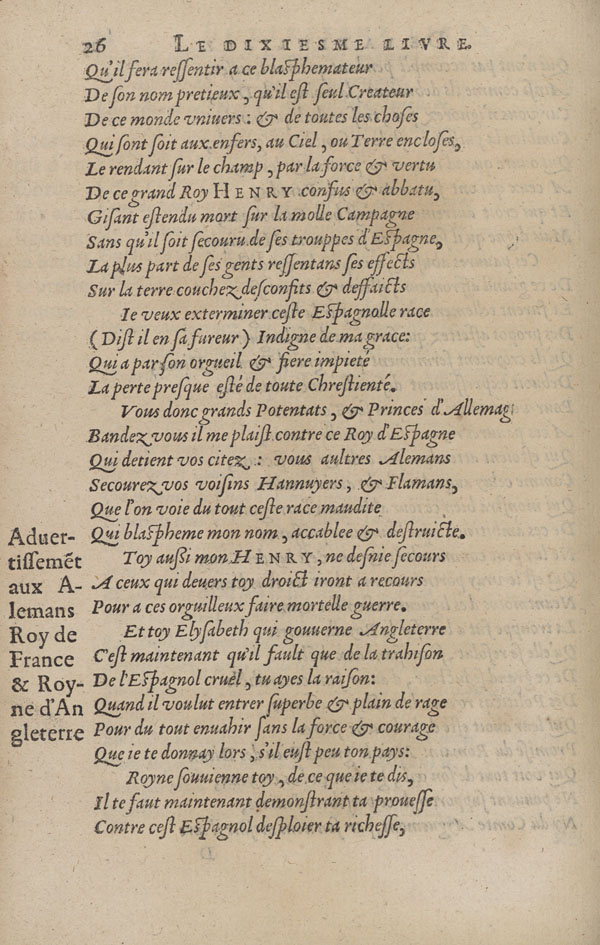 26 LE DIXIESME LIVRE.
Qu'il fera reſſentir a ce blaſphemateur
De ſon nom pretieux, qu'il eſt ſeul Createur
De ce monde vniuers: & de toutes les choſes
Qui ſont ſoit aux enfers, au Ciel, ou Terre encloſes,
Le rendant ſur le champ, par la force & vertu
De ce grand Roy HENRY confus & abbatu,
Giſant eſtendu mort ſur la molle Campagne
Sans qu'il ſoit ſecouru de ſes trouppes d'Eſpagne,
La plus part de ſes gents reſſentans ſes effects
Sur la terre couchez desconfits & deffaicts
Ie veux exterminer ceſte Eſpagnolle race
(Diſt il en ſa fureur) Indigne de ma grace:
Qui a par ſon orgueil & fiere impieté
La perte preſque eſté de toute Chreſtienté.
Vous donc grands Potentats, & Princes d'Allemag
Bandez vous il me plaiſt contre ce Roy d'Eſpagne
Qui detient vos citez: vous aultres Alemans
Secourez vos voiſins Hannuyers, & Flamans,
Que l'on voie du tout ceſte race maudite
Qui blaſpheme mon nom, accablee & deſtruicte.
Toy auſſi mon HENRY, ne deſnie ſecours
A ceux qui deuers toy droict iront a recours
Pour a ces orguilleux faire mortelle guerre.
Et toy Elyſabeth qui gouuerne Angleterre
C'eſt maintenant qu'il fault que de la trahiſon
De l'Eſpagnol cruel, tu ayes la raiſon:
Quand il voulut entrer ſuperbe & plain de rage
Pour du tout enuahir ſans la force & courage
Que ie te donnay lors, s'il euſt peu ton pays:
Royne ſouuienne toy, de ce que ie te dis,
Il te faut maintenant demonſtrant ta proueſſe
Contre ceſt Eſpagnol deſploier ta richeſſe,
Aduer-
tiſſemēt
aux A-
lemans
Roy de
France
& Roy-
ne d'An
gleterre